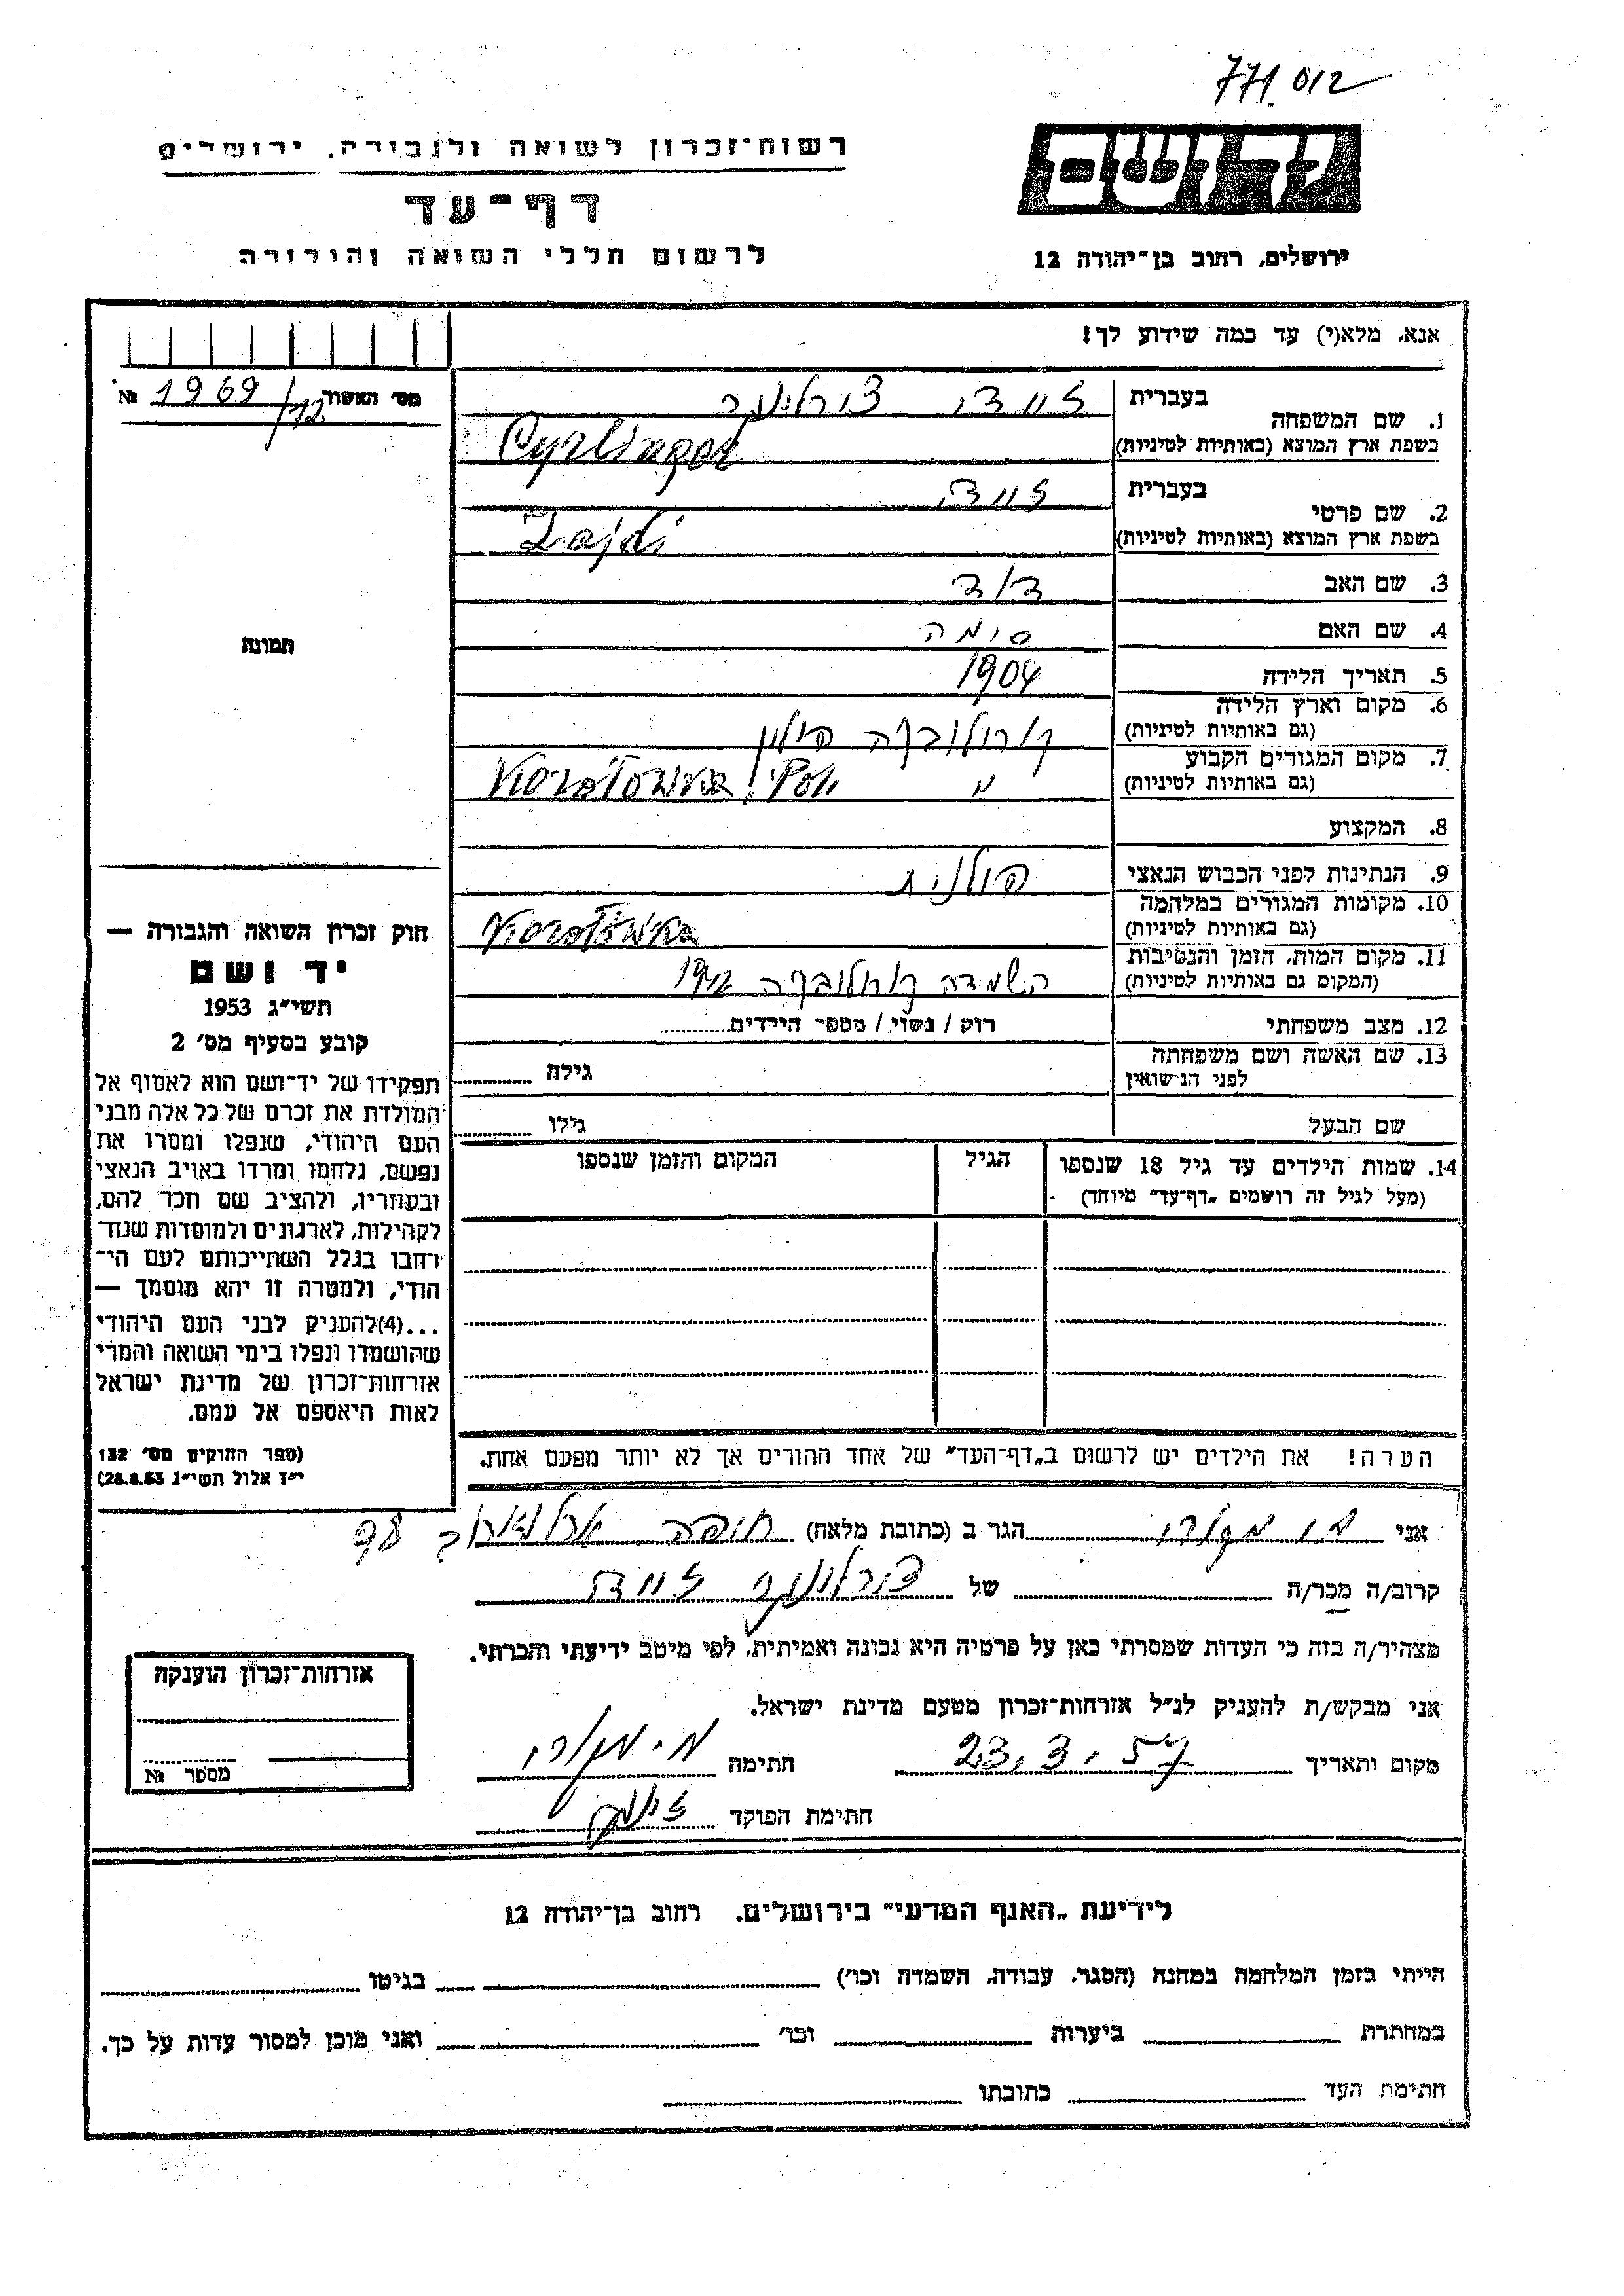 771012
רשות-זכרון לשואה ולגבורה, ירושלים
יד ושם
דף-עד
לרשום חללי השואה והגבורה
ירושלים, רחוב בן-יהודה 12
אנא, מלא(י) עד כמה שידוע לך!
מס׳ האשור 1969/12 №
1. שם המשפחה
בעברית צירלינגר
בשפת ארץ המוצא (באותיות לטיניות) Cyrlinger
2. שם פרטי
בעברית
בשפת ארץ המוצא (באותיות לטיניות) Zajdi
3. שם האב דוד
4. שם האם סימה
5. תאריך הלידה 1904
6. מקום וארץ הלידה
(גם באותיות לטיניות) קורולובקה פולין
7. מקום המגורים הקבוע
(גם באותיות לטיניות) "
8. המקצוע
9. הנתינות לפני הכבוש הנאצי פולנית
10. מקומות המגורים במלחמה
(גם באותיות לטיניות)
11. מקום המות, הזמן והנסיבות
(המקום גם באותיות לטיניות) השמדה קורולובקה 1942
12. מצב משפחתי רוק / נשוי / מספר הילדים
13. שם האשה ושם משפחתה
לפני הנישואין גילה
שם הבעל גילו
14. שמות הילדים עד גיל 18 שנספו הגיל המקום והזמן שנספו
(מעל לגיל זה רושמים „דף-עד" מיוחד)
הערה! את הילדים יש לרשום ב„דף-העד" של אחד ההורים אך לא יותר מפעם אחת.
תמונה
חוק זכרון השואה והגבורה —
יד ושם
תשי״ג 1953
קובע בסעיף מס׳ 2
תפקידו של יד-ושם הוא לאסוף אל
המולדת את זכרם של כל אלה מבני
העם היהודי, שנפלו ומסרו את
נפשם, נלחמו ומרדו באויב הנאצי
ובעוזריו, ולהציב שם וזכר להם,
לקהילות, לארגונים ולמוסדות שנח-
רחבו בגלל השתייכותם לעם הי-
הודי, ולמטרה זו יהא מוסמך —
...(4)להעניק לבני העם היהודי
שהושמדו ונפלו בימי השואה והמרי
אזרחות-זכרון של מדינת ישראל
לאות היאספם אל עמם.
(ספר החוקים מס׳ 132
י״ז אלול תשי״ג 28.8.53)
אני הגר ב (כתובת מלאה) חיפה
קרוב/ה מכר/ה של צירלינגר
מצהיר/ה בזה כי העדות שמסרתי כאן על פרטיה היא נכונה ואמיתית, לפי מיטב ידיעתי והכרתי.
אני מבקש/ת להעניק לנ״ל אזרחות-זכרון מטעם מדינת ישראל.
מקום ותאריך 23.3.57 חתימה
חתימת הפוקד
אזרחות-זכרון הוענקה
מספר №
לידיעת „האגף המדעי" בירושלים, רחוב בן-יהודה 12
הייתי בזמן המלחמה במחנה (הסגר, עבודה, השמדה וכו׳) בגיטו
במחתרת ביערות וכו׳ ואני מוכן למסור עדות על כך.
חתימת העד כתובתו